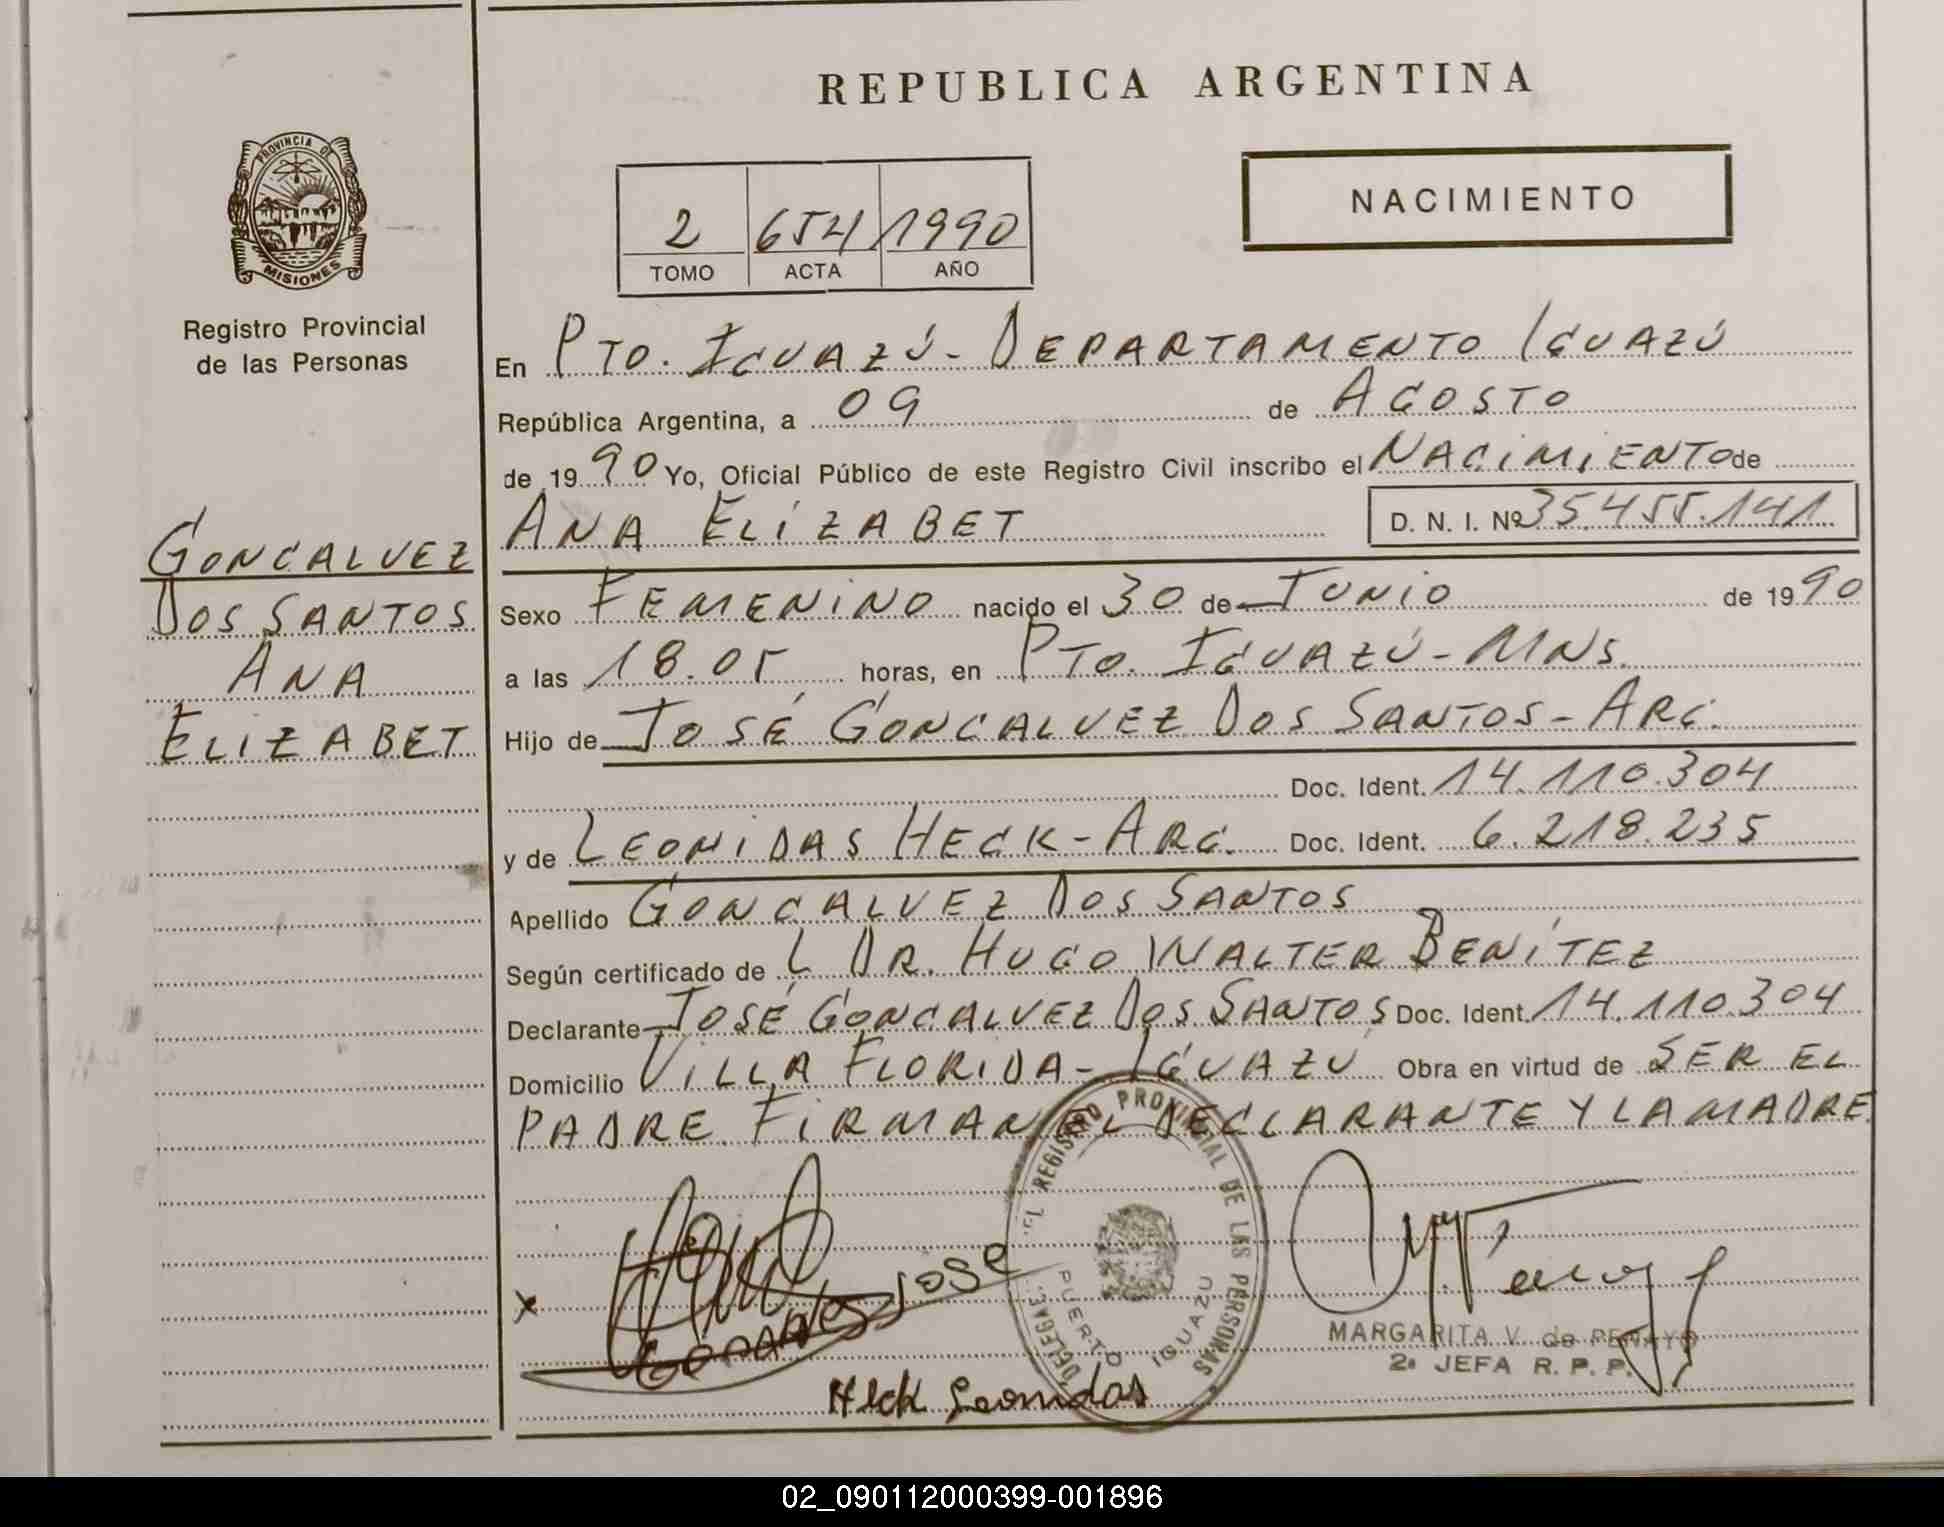 REPUBLICA ARGENTINA
PROVINCIA DE
MISIONES
Registro Provincial
de las Personas
NACIMIENTO
2 654 1990
TOMO ACTA AÑO
En PTO. IGUAZÚ - DEPARTAMENTO IGUAZÚ
República Argentina, a 09 de AGOSTO
de 1990 Yo, Oficial Público de este Registro Civil inscribo el NACIMIENTO de
ANA ELIZABET D. N. I. Nº 35.455.141
GONCALVEZ
DOS SANTOS
ANA
ELIZABET
Sexo FEMENINO nacido el 30 de JUNIO de 1990
a las 18.05 horas, en PTO. IGUAZÚ - MNS.
Hijo de JOSÉ GONCALVEZ DOS SANTOS - ARG.
Doc. Ident. 14.110.304
y de LEONIDAS HECK - ARG. Doc. Ident. 6.218.235
Apellido GONCALVEZ DOS SANTOS
Según certificado de L DR. HUGO WALTER BENÍTEZ
Declarante JOSÉ GONCALVEZ DOS SANTOS Doc. Ident. 14.110.304
Domicilio VILLA FLORIDA - IGUAZÚ Obra en virtud de SER EL
PADRE. FIRMAN EL DECLARANTE Y LA MADRE.
REGISTRO PROVINCIAL DE LAS PERSONAS
PUERTO IGUAZU
x
JOSE
Heck Leonidas
MARGARITA V. de PENAYO
2ª JEFA R. P. P.
02_090112000399-001896